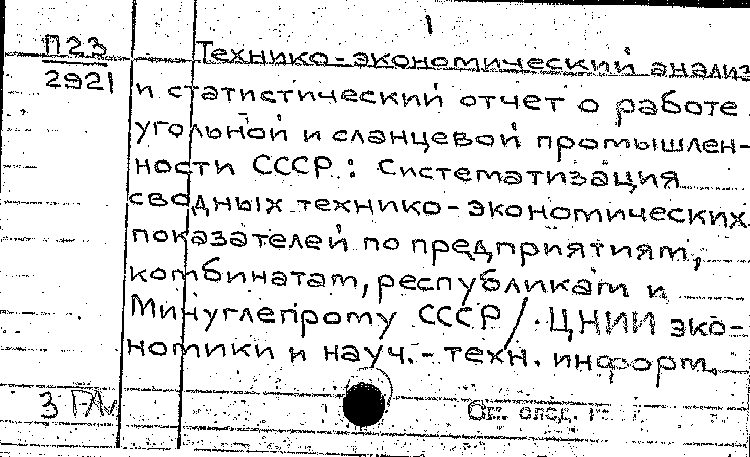 П23
2921
Технико-экономический анализ
и статистический отчет о работе
угольной и сланцевой промышлен-
ности СССР: Систематизация
сводных технико-экономических
показателей по предприятиям,
комбинатам, республикам и
Минуглепрому СССР / ЦНИИ эко-
номики и науч.-техн. информ.
См. след.